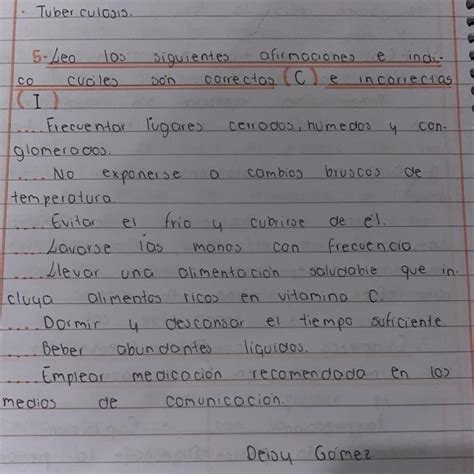 · Tuberculosis.
5-Leo los siguientes afirmaciones e indi-
co cuales son correctas (C) e incorrectas
(I)
.... Frecuentar lugares cerrados, húmedos y con-
glomerados.
.... No exponerse a cambios bruscos de
temperatura.
.... Evitar el frío y cubrirse de él.
.... Lavarse las manos con frecuencia
.... Llevar una alimentación saludable que in-
cluya alimentos ricos en vitamina C.
.... Dormir y descansar el tiempo suficiente.
.... Beber abundantes líquidos.
.... Emplear medicación recomendada en los
medios de comunicación.
Deisy Gómez